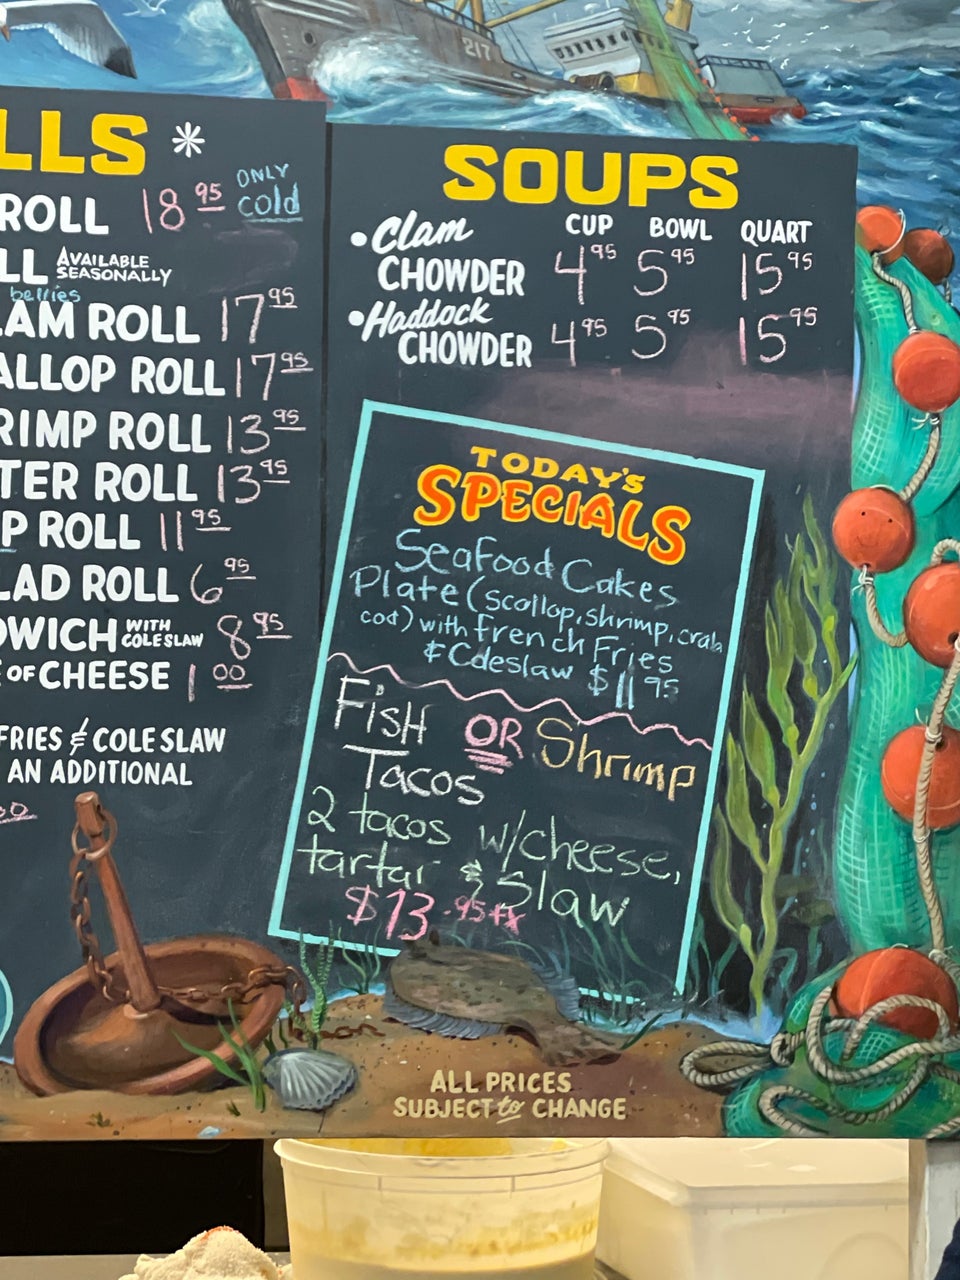 217
LLS *
ROLL 18 95 ONLY cold
LL AVAILABLE SEASONALLY
bellies
LAM ROLL 17 95
ALLOP ROLL 17 95
RIMP ROLL 13 95
TER ROLL 13 95
P ROLL 11 95
LAD ROLL 6 95
DWICH WITH COLESLAW 8 95
E OF CHEESE 1 00
FRIES & COLE SLAW
AN ADDITIONAL
SOUPS
CUP BOWL QUART
• Clam
CHOWDER 4 95 5 95 15 95
• Haddock
CHOWDER 4 95 5 95 15 95
TODAY'S
SPECIALS
Seafood Cakes
Plate (scollop, shrimp, crab
cod) with french Fries
& Coleslaw $11 95
Fish OR Shrimp
Tacos
2 tacos w/cheese,
tartar & Slaw
$13.95+tx
ALL PRICES
SUBJECT to CHANGE